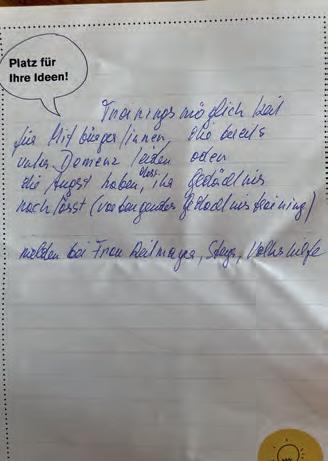 Platz für
Ihre Ideen!
Trainingsmöglichkeit
für Mitbürger/innen, die bereits
unter Demenz leiden oder
die Angst haben, dass ihr Gedächtnis
nachlässt (vorbeugendes Gedächtnistraining)
melden bei Frau, Steyr, Volkshilfe